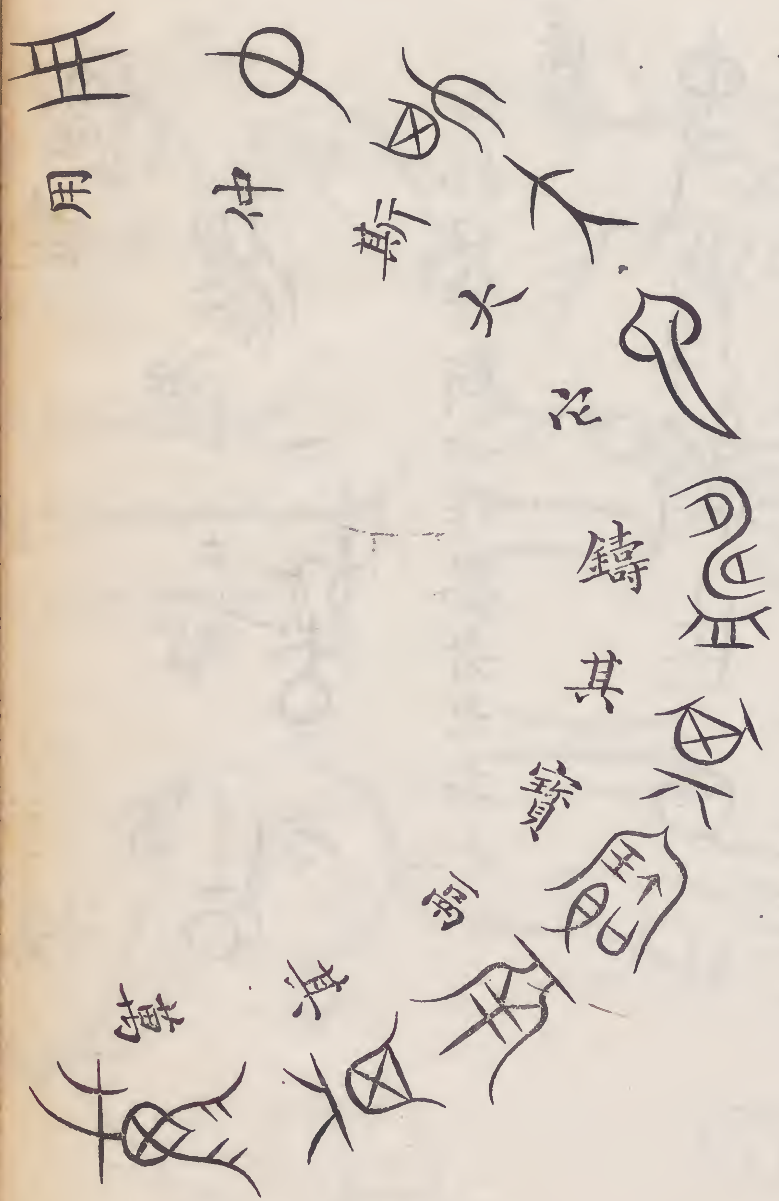 用仲斯大它鑄其寶鬲其萬